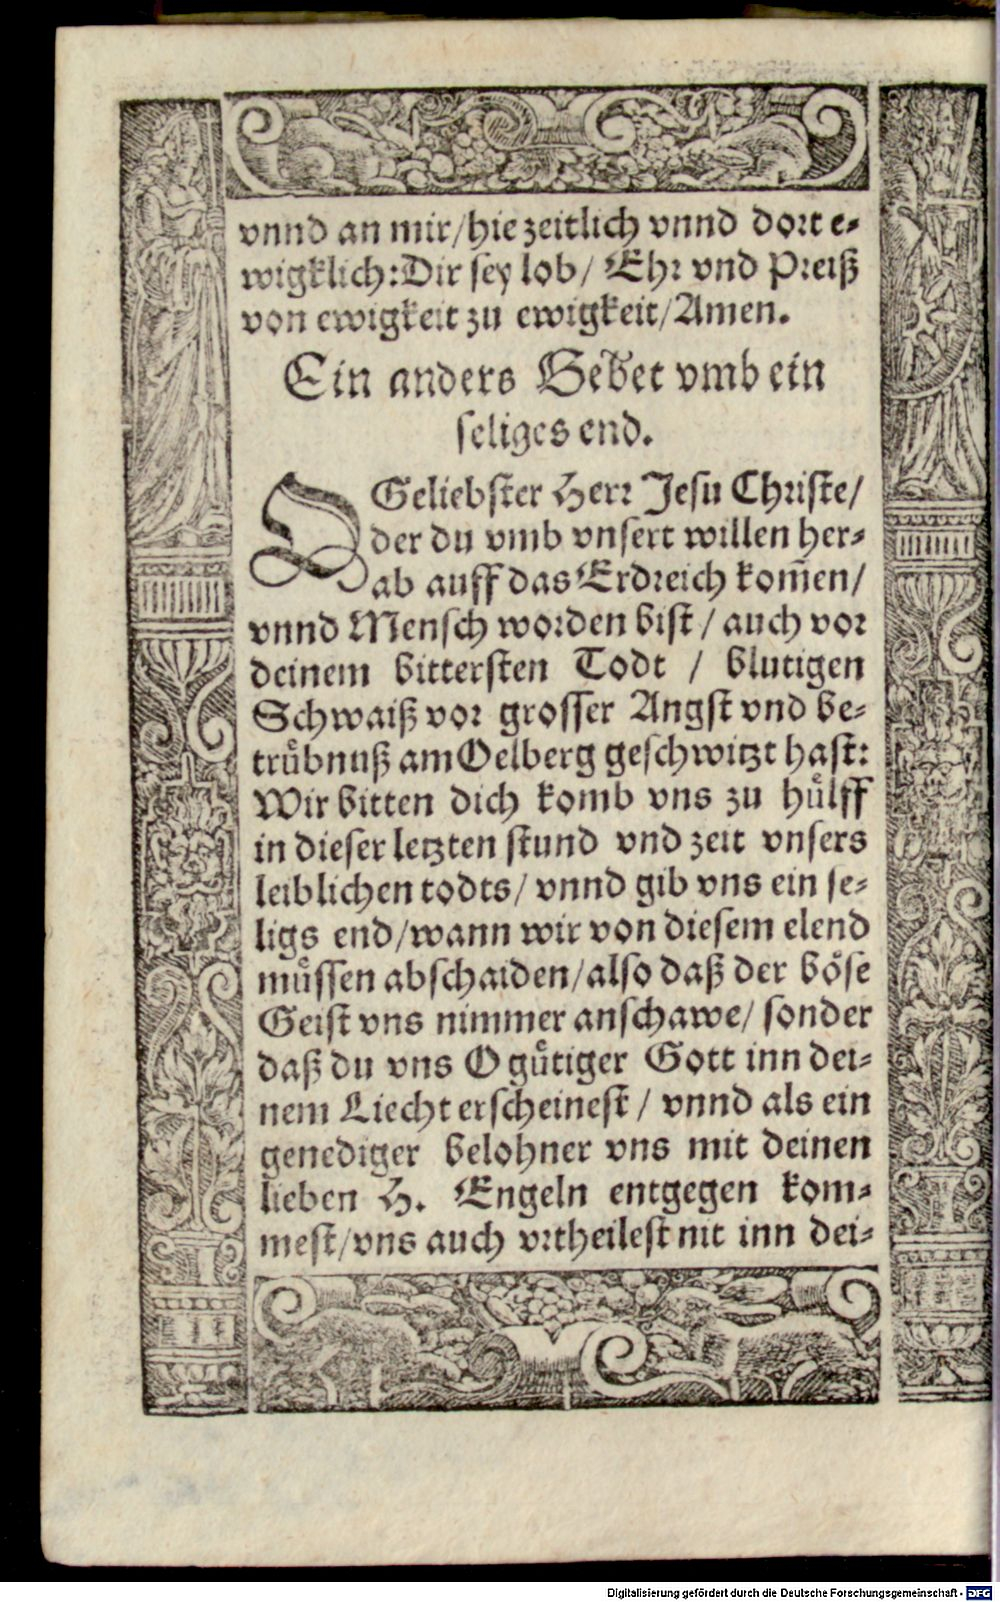 vnnd an mir/hie zeitlich vnnd dort e-
wigklich: Dir sey lob/ Ehr vnd Preiß
von ewigkeit zu ewigkeit/Amen.
Ein anders Gebet vmb ein
seliges end.
O Geliebster Herr Jesu Christe/
der du vmb vnsert willen her-
ab auff das Erdreich kom̃en/
vnnd Mensch worden bist / auch vor
deinem bittersten Todt / blutigen
Schwaiß vor grosser Angst vnd be-
truͤbnuß am Oelberg geschwitzt hast:
Wir bitten dich komb vns zu huͤlff
in dieser letzten stund vnd zeit vnsers
leiblichen todts/ vnnd gib vns ein se-
ligs end/wann wir von diesem elend
muͤssen abschaiden/also daß der boͤse
Geist vns nimmer anschawe/ sonder
daß du vns O guͤtiger Gott inn dei-
nem Liecht erscheinest / vnnd als ein
genediger belohner vns mit deinen
lieben H. Engeln entgegen kom-
mest/vns auch vrtheilest nit inn dei-
Digitalisierung gefördert durch die Deutsche Forschungsgemeinschaft - DFG